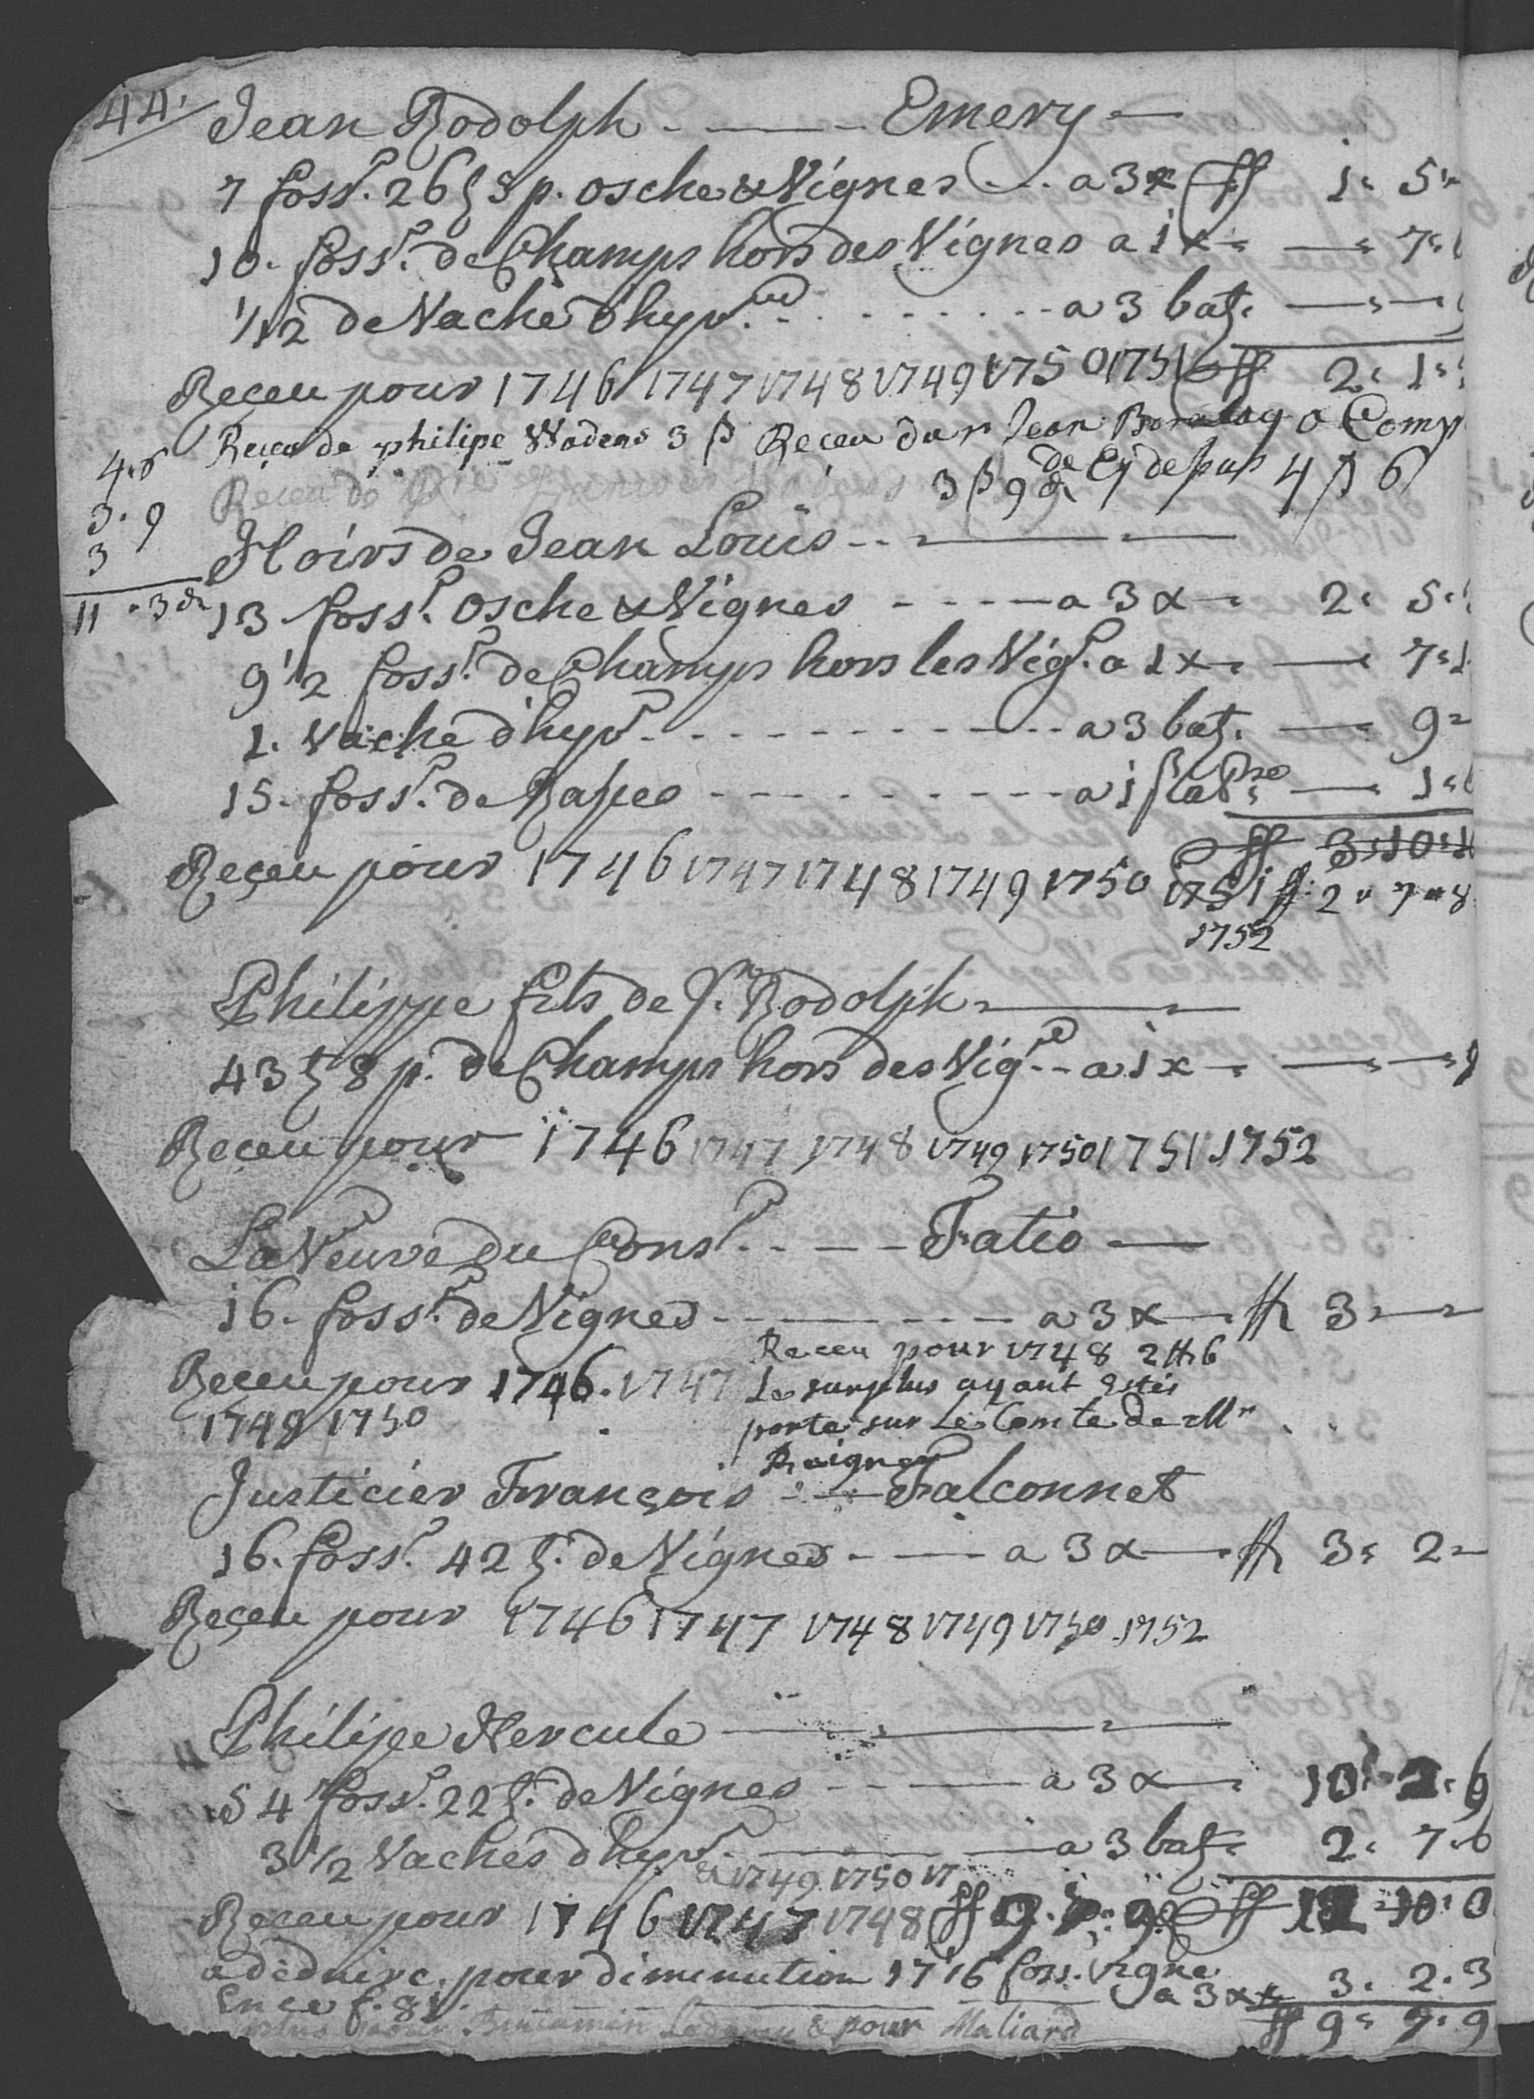 44.
Jean Rodolph - — - Emery —
7 foss.r 26 ʒ 8 p. osche & Vignes - - - a 3 x ff 1: 5:
10. foss.r de Champs hors des Vignes a 1 x — 7:
1/12 de Vache d'hyv.re - - - - - a 3 batz. — —
Reçeu pour 1746 1747 1748 1749 1750 1751 ff 2: 1:
Reçeu de philipe Wadens 3 ß Receu dur Jean a Comp
4.6
3 ß 9 d. de Cy depus 4 ß 6
3.9
3
11 . 3 d.
Hoirs de Jean Loüis - - — —
13 foss.r Osche & Vignes - - - — a 3 x — 2: 5:
9 1/2 foss.r de Champs hors les Vig.s a 1 x — 7:
1. Vache d'hyv.r - - - - - a 3 batz. — 9
15. foss.r de Rapes - - - - - a 1 ß la P.se — 1:
ff 3: 10:
Reçeu pour 1746 1747 1748 1749 1750 1751 ff 2 " 7 " 8
1752
Philippe fils de J.n Rodolph — —
43 ʒ 8 p. de Champs hors des Vig.s - - a 1 x — — —
Reçeu pour 1746 1747 1748 1749 1750 1751 1752
La Veuve du Cons.r - - — — Fatio —
16. foss.r de Vignes - - — - - a 3 x — ff 3: — —
Receu pour 1748 2 ff 6
Reçeu pour 1746. 1747 Le surplus ayant Estés
1749 1750 porte sur Le Comte de Mr
Justicier François - — Falconnet
16. foss.r 42 ʒ. de Vignes - - — a 3 x — ff 3: 2 —
Reçeu pour 1746 1747 1748 1749 1750 1752
Philipe Hercule — — —
54 foss.r 22 ʒ. de Vignes - - — a 3 x — 10: 2: 9
3 1/2 Vaches d'hyv.r — — a 3 batz 2: 7: 6
& 1749 1750 17
Reçeu pour 1746 1747 1748 ff 9. 7. 9 ff 12 10: 3
a deduire. pour diminution 17 16 foss. Vigne
En ce f. 81. — — a 3 x 3. 2. 3
plus pour Benjamin & pour Maliard ff 9: 7. 9